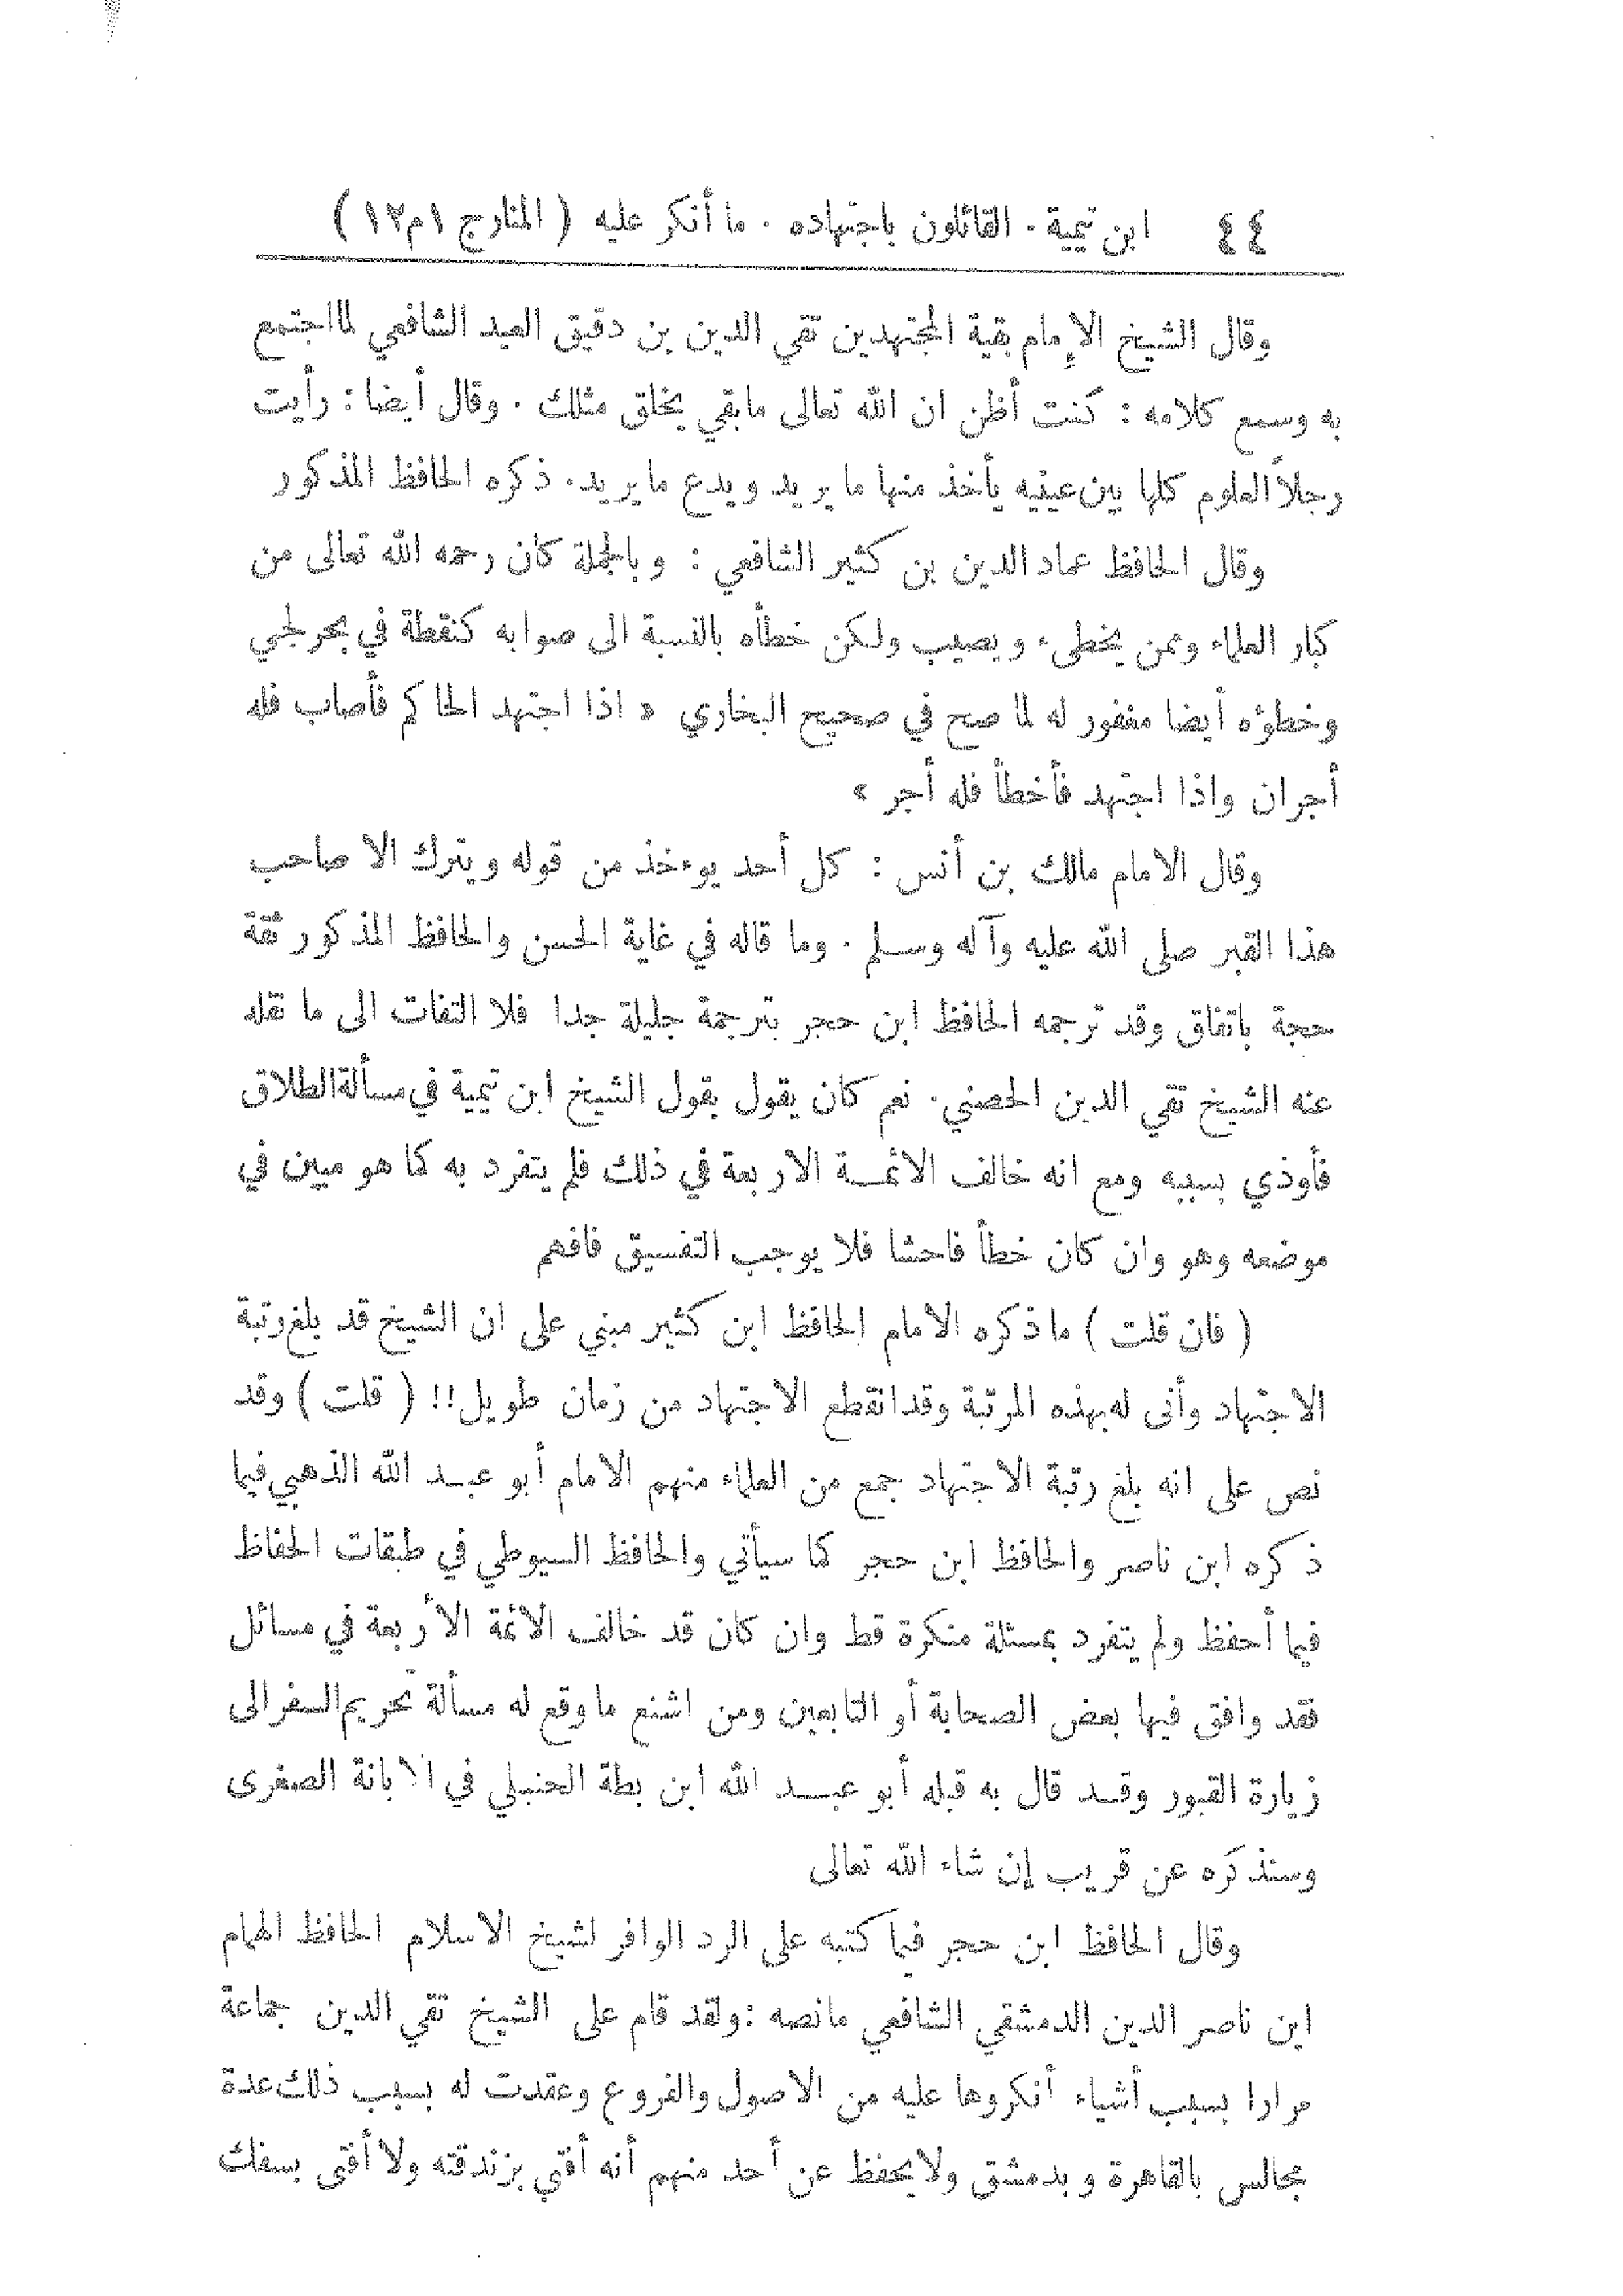 ٤٤ ابن تيمية . القائلون باجتهاده . ما أنكر عليه ( المنارج ١م١٢ )
وقال الشيخ الإمام بقية المجتهدين تقي الدين بن دقيق العيد الشافعي لما اجتمع
به وسمع كلامه : كنت أظن ان الله تعالى مابقي يخلق مثلك . وقال أيضا : رأيت
رجلاً العلوم كلها بين عينيه يأخذ منها ما يريد ويدع ما يريد . ذكره الحافظ المذكور
وقال الحافظ عماد الدين بن كثير الشافعي : وبالجملة كان رحمه الله تعالى من
كبار العلماء وممن يخطىء ويصيب ولكن خطأه بالنسبة الى صوابه كنقطة في بحر لجي
وخطؤه أيضا مغفور له لما صح في صحيح البخاري « اذا اجتهد الحاكم فأصاب فله
أجران واذا اجتهد فأخطأ فله أجر »
وقال الامام مالك بن أنس : كل أحد يوءخذ من قوله ويترك الا صاحب
هذا القبر صلى الله عليه وآله وسلم . وما قاله في غاية الحسن والحافظ المذكور ثقة
حجة باتفاق وقد ترجمه الحافظ ابن حجر بترجمة جليلة جدا فلا التفات الى ما نقله
عنه الشيخ تقي الدين الحصني . نعم كان يقول بقول الشيخ ابن تيمية في مسألة الطلاق
فأوذي بسببه ومع انه خالف الائمة الاربعة في ذلك فلم يتفرد به كما هو مبين في
موضعه وهو وان كان خطأ فاحشا فلا يوجب التفسيق فافهم
( فان قلت ) ماذكره الامام الحافظ ابن كثير مبني على ان الشيخ قد بلغ رتبة
الاجتهاد وأنى له بهذه المرتبة وقد انقطع الاجتهاد من زمان طويل !! ( قلت ) وقد
نص على انه بلغ رتبة الاجتهاد جمع من العلماء منهم الامام أبو عبد الله الذهبي فيما
ذكره ابن ناصر والحافظ ابن حجر كما سيأتي والحافظ السيوطي في طبقات الحفاظ
فيما أحفظ ولم يتفرد بمسئلة منكرة قط وان كان قد خالف الائمة الأربعة في مسائل
فقد وافق فيها بعض الصحابة أو التابعين ومن اشنع ما وقع له مسألة تحريم السفر الى
زيارة القبور وقد قال به قبله أبو عبد الله ابن بطة الحنبلي في الابانة الصغرى
وسنذكره عن قريب إن شاء الله تعالى
وقال الحافظ ابن حجر فيما كتبه على الرد الوافر لشيخ الاسلام الحافظ الهمام
ابن ناصر الدين الدمشقي الشافعي مانصه : ولقد قام على الشيخ تقي الدين جماعة
مرارا بسبب أشياء أنكروها عليه من الاصول والفروع وعقدت له بسبب ذلك عدة
مجالس بالقاهرة وبدمشق ولا يحفظ عن أحد منهم أنه أفتى بزندقته ولا أفتى بسفك